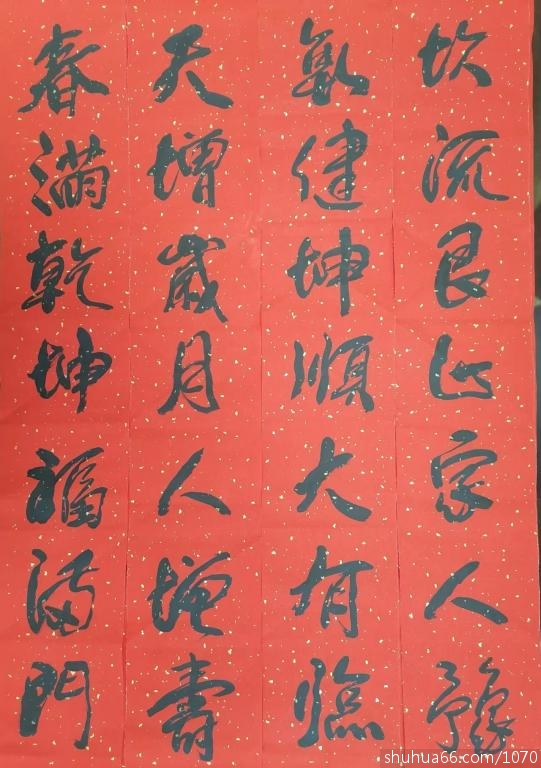 坎流艮止家人豫
乾健坤順大有臨
天增歲月人增壽
春滿乾坤福滿門
shuhua66.com/1070